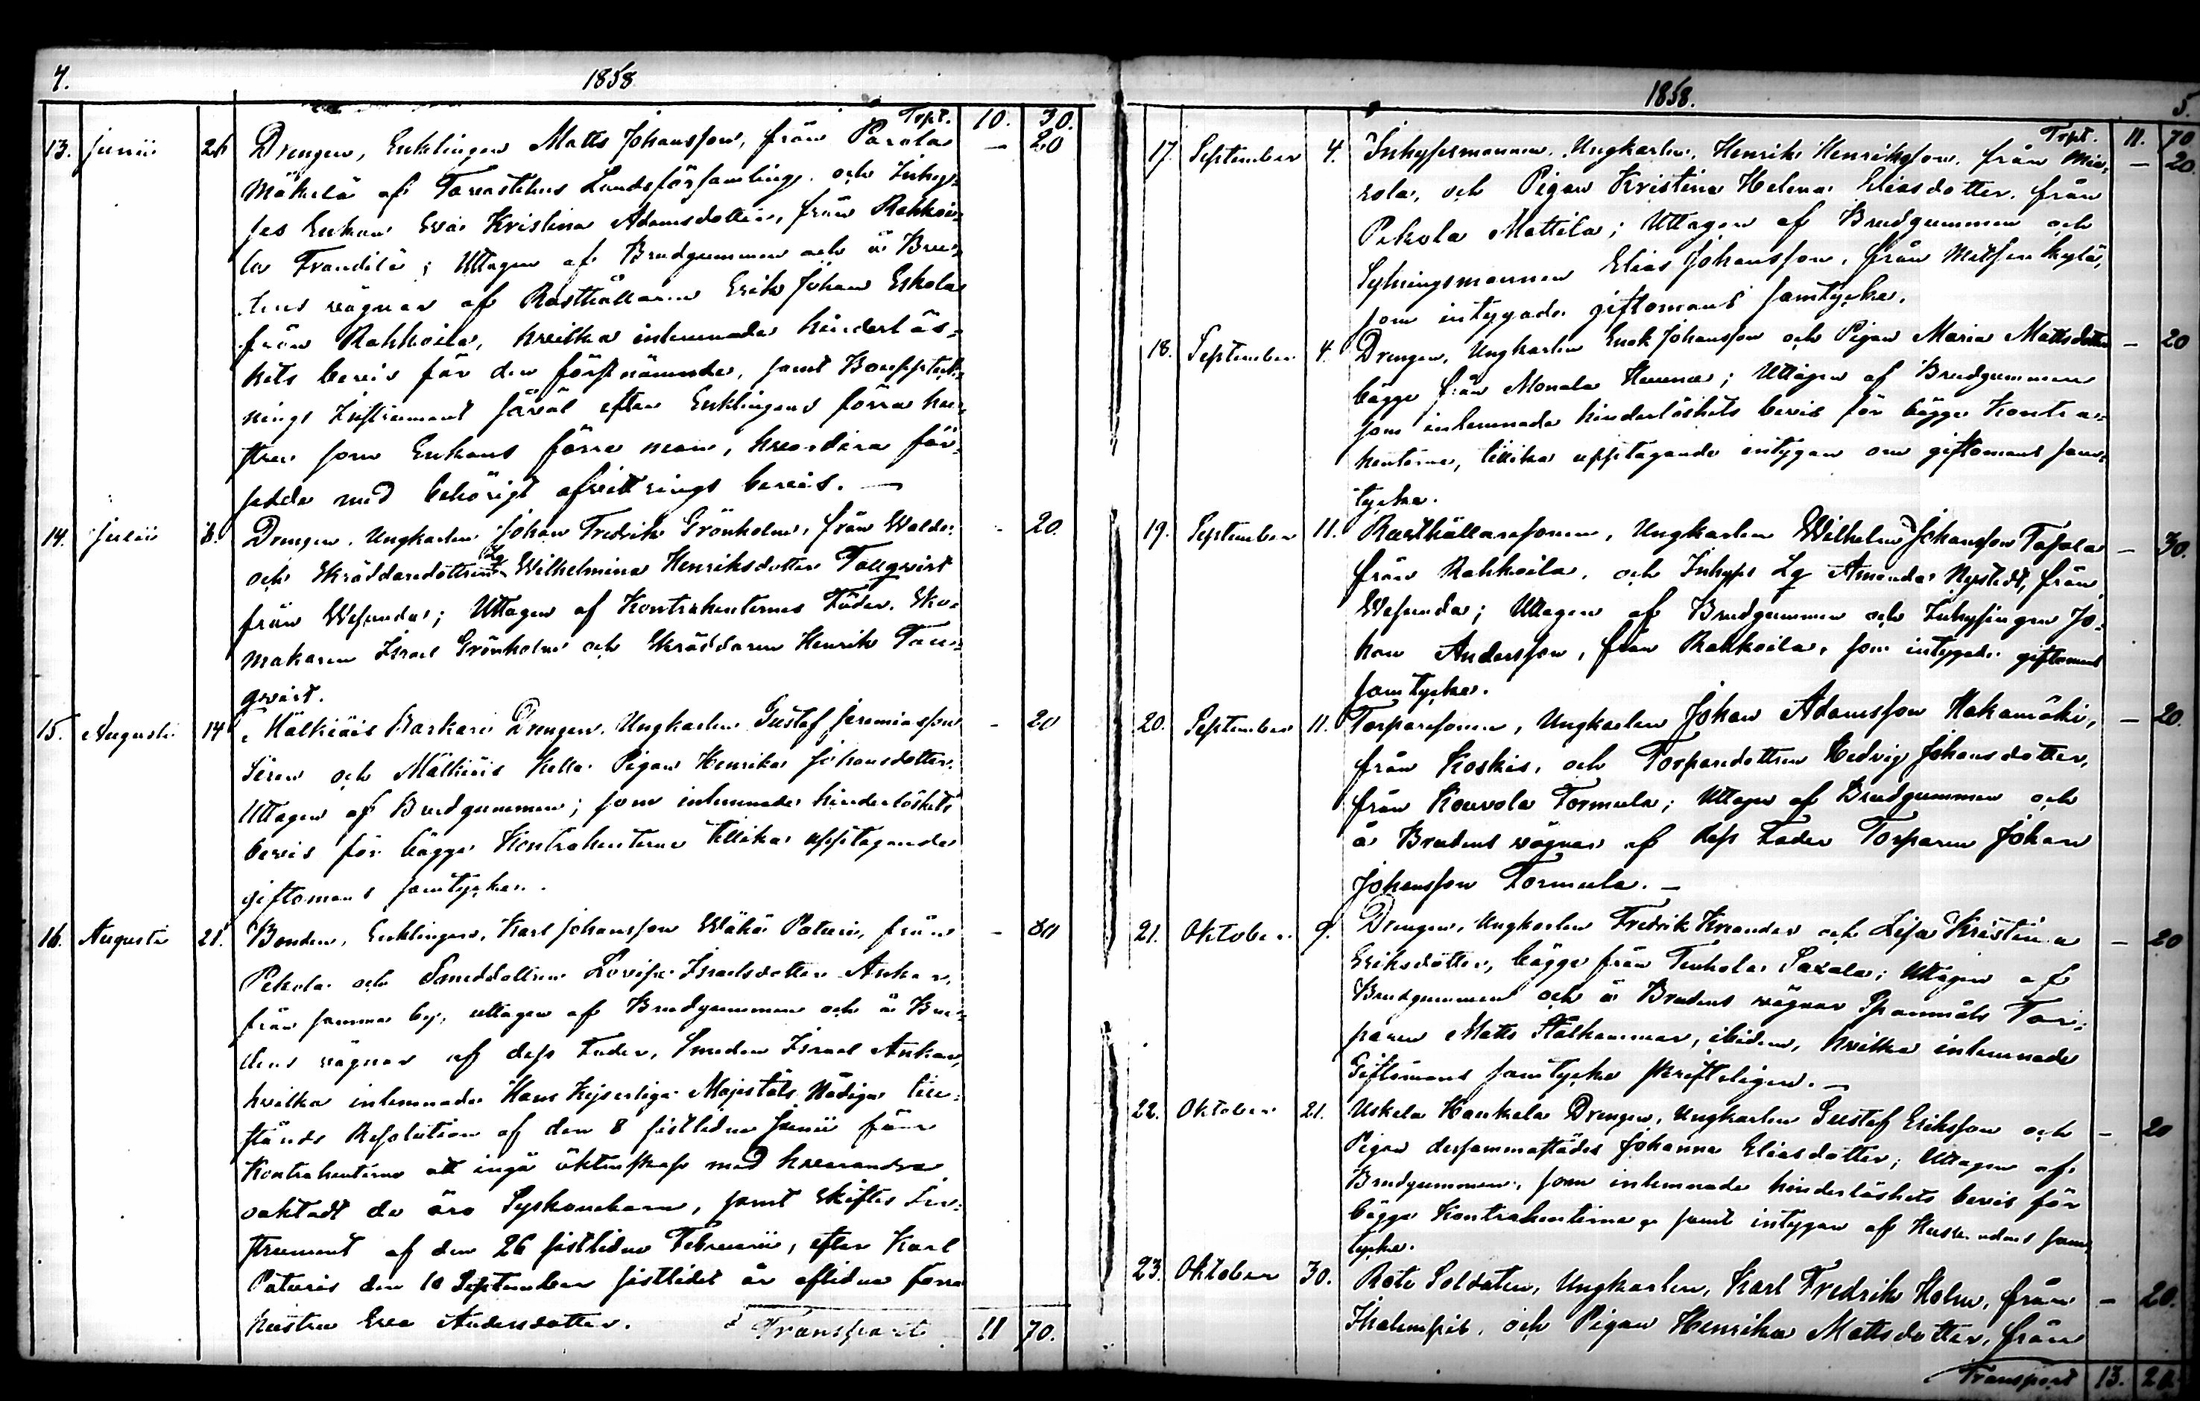 4.
1858
Trpt. 10. 30.
13. Junii 26 Drengen, Enklingen Matts Johansson, från Parola — 20
Mäkelä af Tavastehus Landsförsamlings och Inhy-
ses Enkan Eva Kristina Adamsdotter, från Rahkoi-
la Frandilä; Uttagen af Brudgummen och å Bru-
dens vägnar af Rusthållaren Erik Johan Eskola
från Rahkoila, hvilka inlemnade hinderlös-
hets bevis för den förstnämnde, samt Bouppteck-
nings Instrument såväl efter Enklingens förra hu-
stru som Enkans förre man, hvardera för-
sedde med behörigt afvittrings bevis. —
14. Julii 3. Drengen, Ungkarlen Johan Fredrik Grönholm, från Walde - 20.
och Skräddaredottren Lg Wilhelmina Henriksdotter Tallqvist
från Wesunda; Uttagen af Kontrahenternes Fäder, Sko-
makaren Israel Grönholm och Skräddaren Henrik Tall-
qvist.
15. Augusti 14 Mälkiäis Karkari Drengen, Ungkarlen Gustaf Jeremiasson - 20
Sirén och Mälkiäis Kella Pigan Henrika Johansdotter.
Uttagen af Brudgummen; som inlemnade hinderlöshets
bevis för bägge Kontrahenterne tillika upptagande
giftomans samtycke.
16. Augusti 21. Bonden, Enklingen, Karl Johansson Wähä Paturi, från - 80
Pekola och Smeddottren Lovisa Israelsdotter Ankar,
från samma by, uttagen af Brudgummen och å Bru-
dens vägnar af dess Fader, Smeden Israel Ankar,
hvilka inlemnade Hans Kejserliga Majestäts Nådiga till-
stånds Resolution af den 8 sistledne Junii för
Kontrahenterne att ingå äktenskap med hvarandra
oaktadt de äro Syskonebarn, samt Skiftes In-
strument af den 26 sistledne Februarii, efter Karl
Paturis den 10 September sistledet år aflidna förra
hustru Eva Andersdotter.
Transport 11 70.
1858.
5.
Trpt. 11. 70
17. September 4. Inhysesmannen, Ungkarlen, Henrik Henriksson, från Mie- — 20.
rola, och Pigan Kristina Helena Eliasdotter, från
Pekola Mattila; Uttagen af Brudgummen och
Sytningsmannen Elias Johansson, från Metsenkylä,
som intygade giftomans samtycke.
18. September 4. Drengen, Ungkarlen Enok Johansson och Pigan Maria Mattsdotter — 20
bägge från Monala; Uttagen af Brudgummen
som inlemnade hinderlöshets bevis för bägge Kontra-
henterne, tillika upptagande intygan om giftomans sam-
tycke.
19. September 11. Rusthållaresonen, Ungkarlen Wilhelm Johansson Tapola — 30.
från Rahkoila, och Inhyses Lg Amanda Nystedt, från
Wesunda; Uttagen af Brudgummen och Inhysingen Jo-
han Andersson, från Rahkoila, som intygade giftomans
samtycke.
20. September 11. Torparesonen, Ungkarlen Johan Adamsson Hakamäki, — 20.
från Koskis, och Torparedottren Hedvig Johansdotter,
från Kouvola Tormula; Uttagen af Brudgummen och
å Brudens vägnar af dess Fader Torparen Johan
Johansson Tormula. —
21. Oktober 9. Drengen, Ungkarlen Fredrik Kreander och Lisa Kristina — 20
Eriksdotter, bägge från Tenhola Saxala; Uttagen af
Brudgummen och å Brudens vägnar Spannmåls Tor-
paren Matts Stålhammar, ibidem, hvilka inlemnade
Giftomans samtycke skrifteligen. —
22. Oktober 21. Uskela Haukela Drengen, Ungkarlen Gustaf Eriksson och — 20
Pigan dersammastädes Johanna Eliasdotter; Uttagen af
Brudgummen, som inlemnade hinderlöshets bevis för
bägge Kontrahenterne samt intygan af Husbondens sam-
tycke.
23. Oktober 30. Rote Soldaten, Ungkarlen, Karl Fredrik Holm, från — 20.
Ihalempis, och Pigan Henrika Mattsdotter, från
Transport 13. 20.